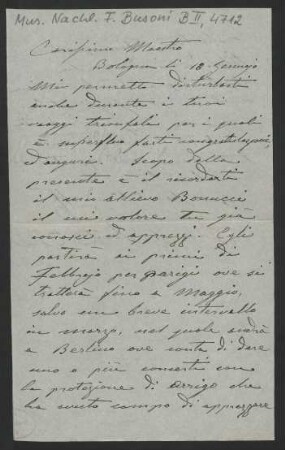 Mus. Nachl. F. Busoni B II, 4712
Carissimo Maestro
Bologna li 18 Gennajo
Mi permetto disturbarti
anche durante i tuoi
viaggi trionfali per i quali
è superfluo farti congratulazioni
ed augurii. Scopo della
presente è il ricordarti
il mio allievo
il cui valore tu già
conosci ed apprezzi. Egli
partirà ai primi di
Febbrajo per Parigi ove si
tratterrà fino a Maggio,
salvo un breve intervallo
in marzo, nel quale andrà
a Berlino ove conta di dare
uno o più concerti con
la protezione di Arrigo che
ha avuto campo di apprezzare